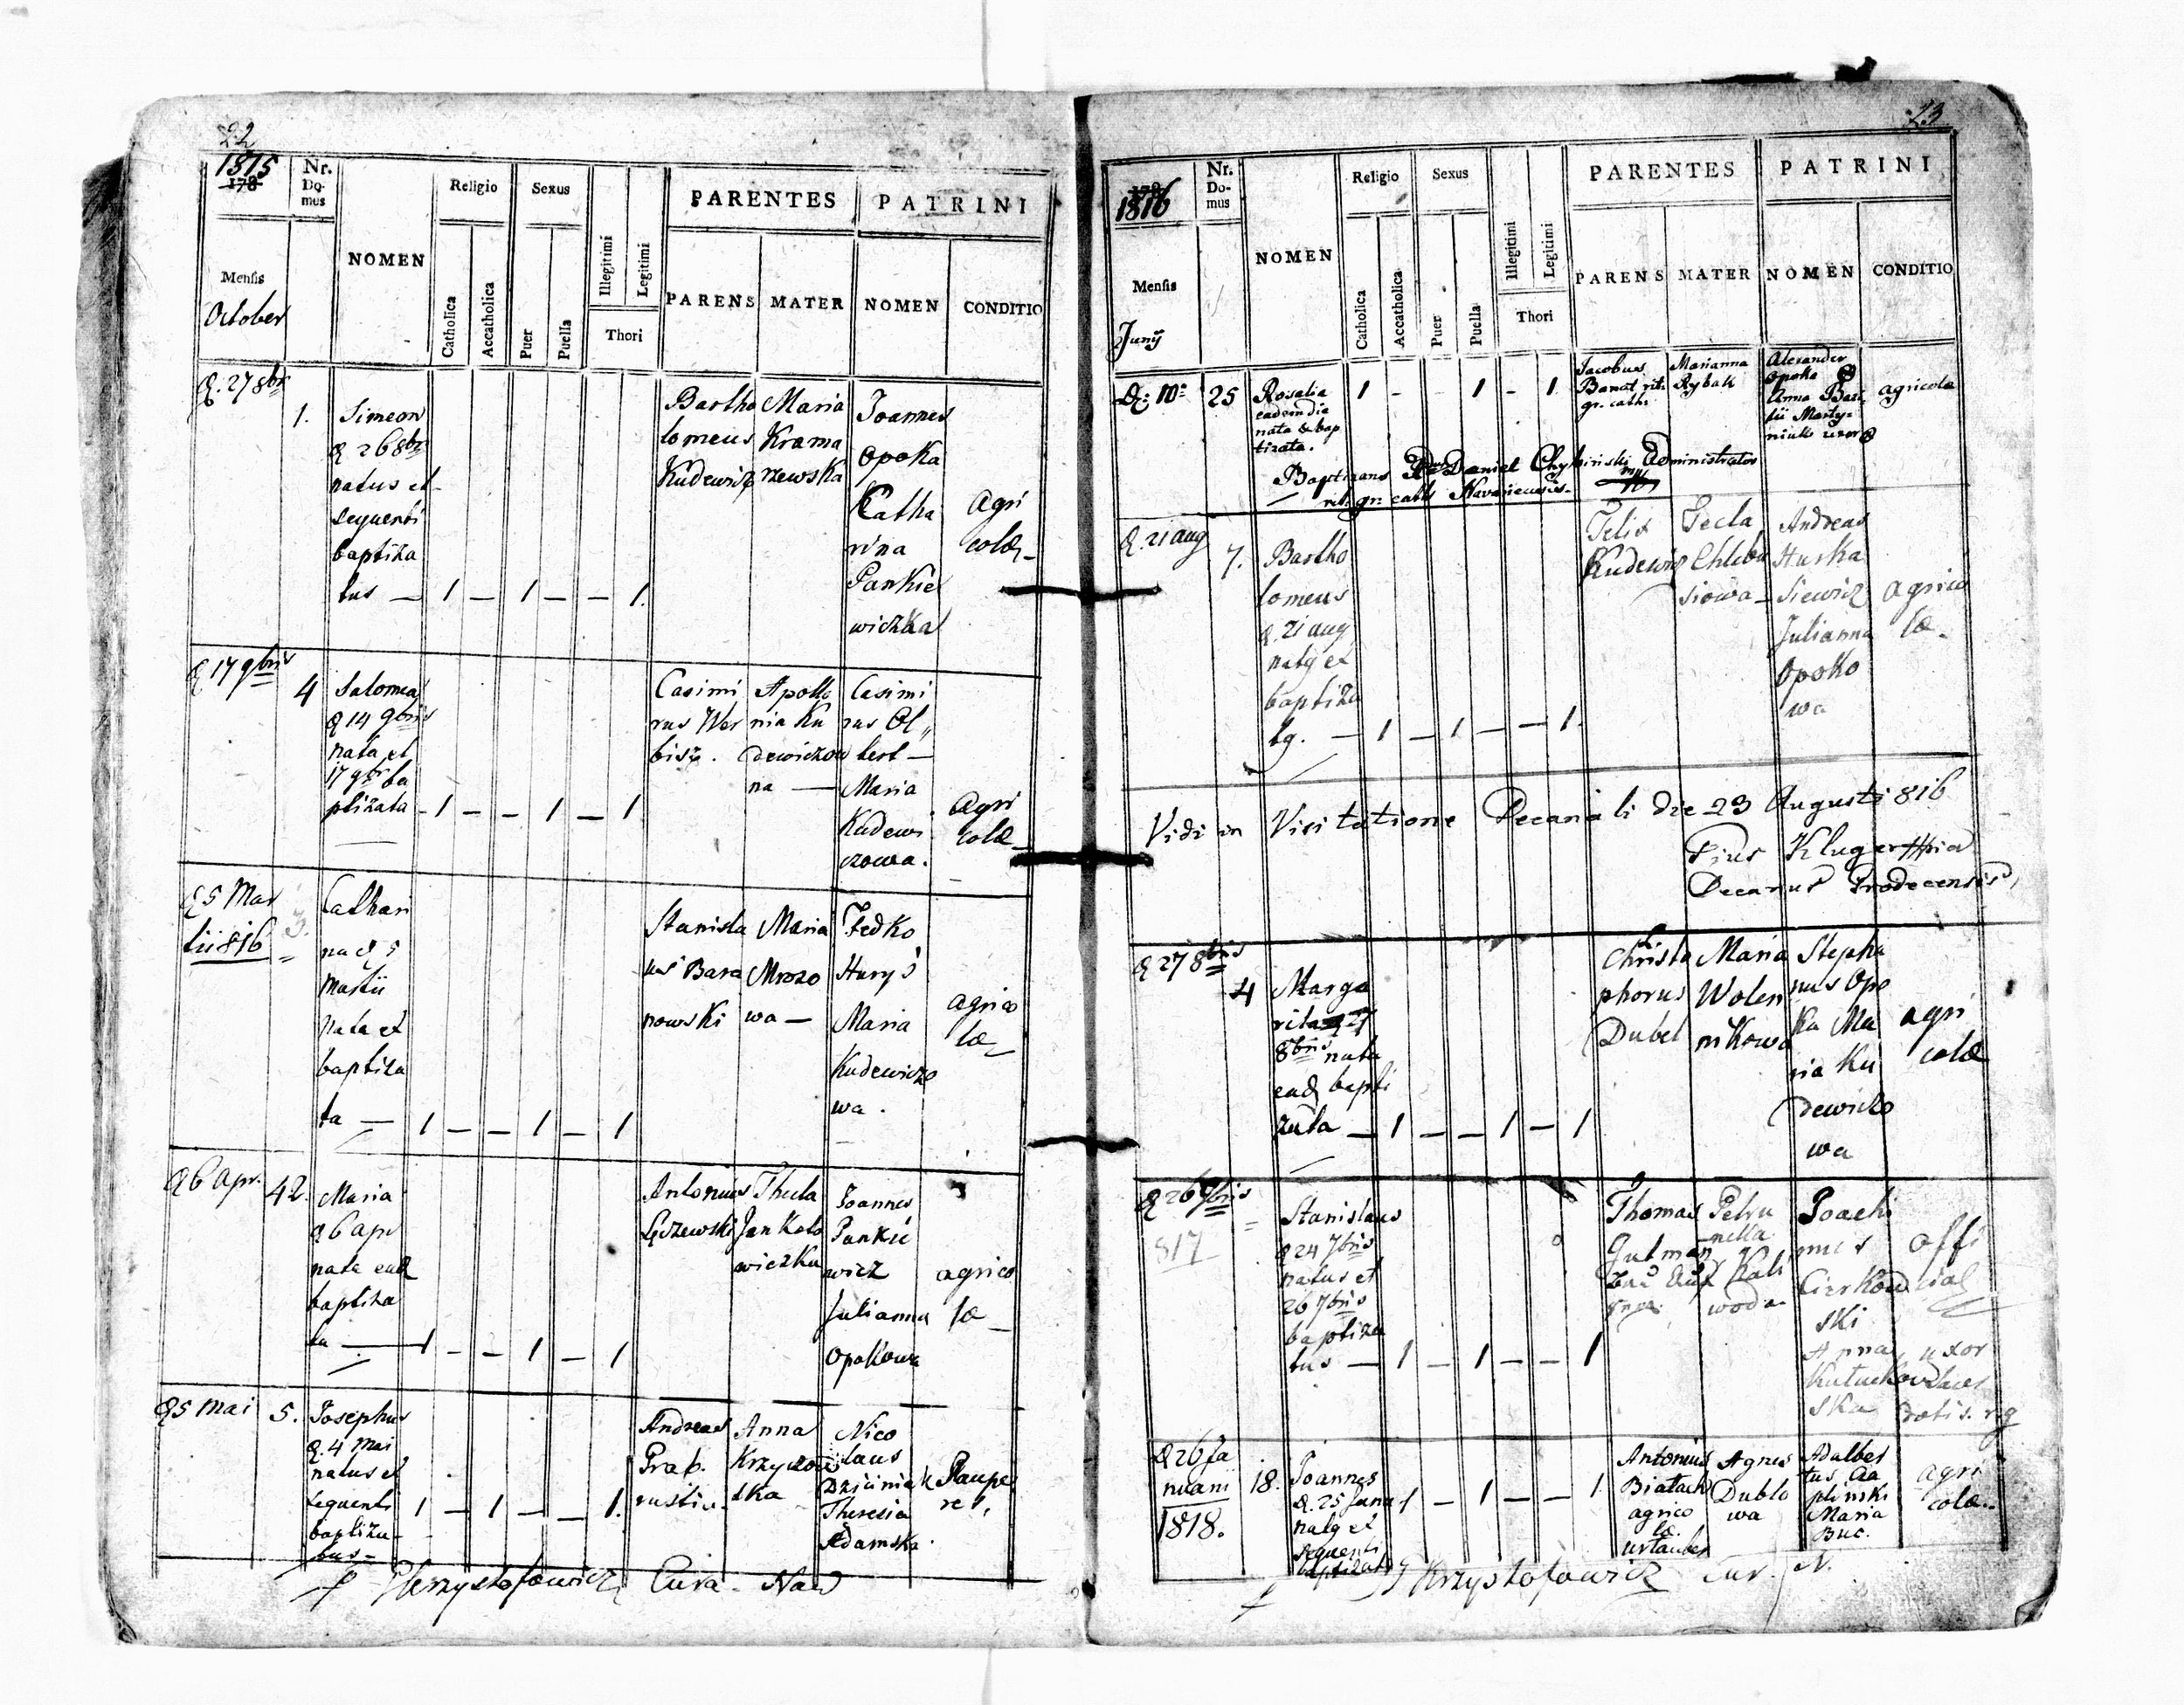 22
1815
Nr. Domus
Mensis
October
NOMEN
Religio
Catholica
Accatholica
Sexus
Puer
Puella
Illegitimi
Legitimi
Thori
PARENTES
PARENS
MATER
PATRINI
NOMEN
CONDITIO
d. 27 8bris
1.
Simeon
d 26 8bris
natus et
sequenti
baptiza
tus — 1 — 1 — — 1.
Bartho
lomeus
Kudewicz
Maria
Krama
rzewska
Joannes
Opoka
Catha
rina
Pankie
wiczka
Agri
colæ
d 17 9bris
4
Salomea
d 14 9bris
nata et
17 9bris ba
ptizata - 1 — — 1 — 1
Casimi
rus Wer
bisz.
Apollo
nia Ku
dewiczow
na —
Casimi
rus Ol„
bert —
Maria
Kudewi
czowa.
Agri
colæ
d 5 Mar
tii 816
3.
Cathari
na d 5
Martii
nata et
baptiza
ta — 1 — — 1 — 1
Stanisla
us Bara
nowski
Maria
Mrozo
wa —
Fedko
Huryś
Maria
Kudewiczo
wa.
agrico
læ
d 6 Apr.
42.
Maria
d 6 apr
nata ead
baptiza
ta — 1 - - 1 — 1
Antonius
Łęczewski
Thecla
Jankoło
wiczka
Joannes
Pankie
wicz
Julianna
Opokowa
agrico
læ
d 5 Mai
5.
Josephus
d. 4 Mai
natus et
sequenti
baptiza-
tus- 1 — 1 — — 1.
Andreas
Grab.
rustic.
Anna
Krzyczow
ska
Nico
laus
Dziciniak
Theresia
Adamska.
Paupe
res.
Krzysztofowicz Cura. Naw
23
1816
Nr. Domus
Mensis
Junÿ
NOMEN
Religio
Catholica
Accatholica
Sexus
Puer
Puella
Illegitimi
Legitimi
Thori
PARENTES
PARENS
MATER
PATRINI
NOMEN
CONDITIO
D: 10a
25
Rosalia
eadem die
nata & bap
tizata.
1 - 1 - 1
Jacobus
Banat rit.
gr. cath.
Marianna
Rybak
Alexander
Opoka &
Anna Basi
lii Marty-
niuk uxor
agricola
Baptizans Daniel Chybiński Administrator
rit. gr. cath. Navariensis.
d. 21 aug
7.
Bartho
lomeus
d. 21 aug
natg et
baptiza
tg. — 1 — 1 — — 1.
Felix
Kudewicz
Tecla
Chleba
siowa —
Andreas
Huska
siewicz
Julianna
Opoko
wa
agrico
læ.
Vidi in Visitatione Decanali die 23 Augusti 816
Pius Kluger
Decanus Grodecensis
d 27 8bris
4
Marga
rita d 27
8bris nata
ead bapti
zata — 1 — — 1 — 1
Christo
phorus
Dubel
Maria
Wolen
nikowa
Stepha
nus Opo
ka Ma
ria Ku
dewiczo
wa
agri
colæ
d 26 7bris
817
Stanislaus
d 24 7bris
natus et
26 7bris
baptiza
tus — 1 — 1 — — 1
Thomas
Gutman
Petru
nella
Kali
woda
Joachi
mus
Cierkow
ski
Anna
Kutuckow
ska
offi
cial
uxor
d 26 Ja
nuarii
1818.
18.
Joannes
d. 25 Janu
natg et
sequenti
baptizatg
1 — 1 — — 1.
Antonius
Białach
agrico
læ.
urlauber
Agnes
Dublo
wa
Adalber
tus Cza
plinski
Maria
Buc.
agri
colæ.
J Krzysztofowicz Cur. N.